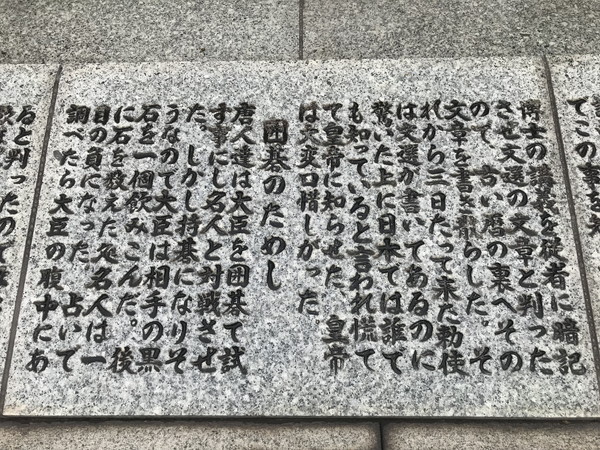 てこの事を
博士の講義を従者に暗記
させ文選の文章と判った
ので、古い暦の裏へその
文章を書き散らした。そ
れから三日たって来た勅使
は文選が書いてあるのに
驚いた上に日本では誰で
も知っていると言われ慌て
て皇帝に知らせた 皇帝
は大変口惜しがった
囲碁のためし
唐人達は大臣を囲碁で試
す事にし名人と対戦させ
た。しかし持碁になりそ
うなので大臣は相手の黒
石を一個飲みこんだ。後
に石を数えた処名人は一
目の負になった 占いで
調べたら大臣の腹中にあ
ると判ったので